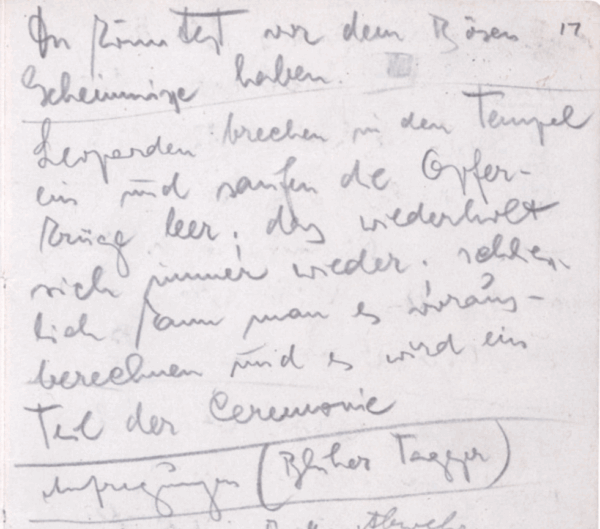 Du könntest vor dem Bösen 17
Geheimnisse haben.
Leoparden brechen in den Tempel
ein und saufen die Opfer-
krüge leer; das wiederholt
sich immer wieder; schliess-
lich kann man es voraus-
berechnen und es wird ein
Teil der Ceremonie
Aufregungen (Blüher Tagger)